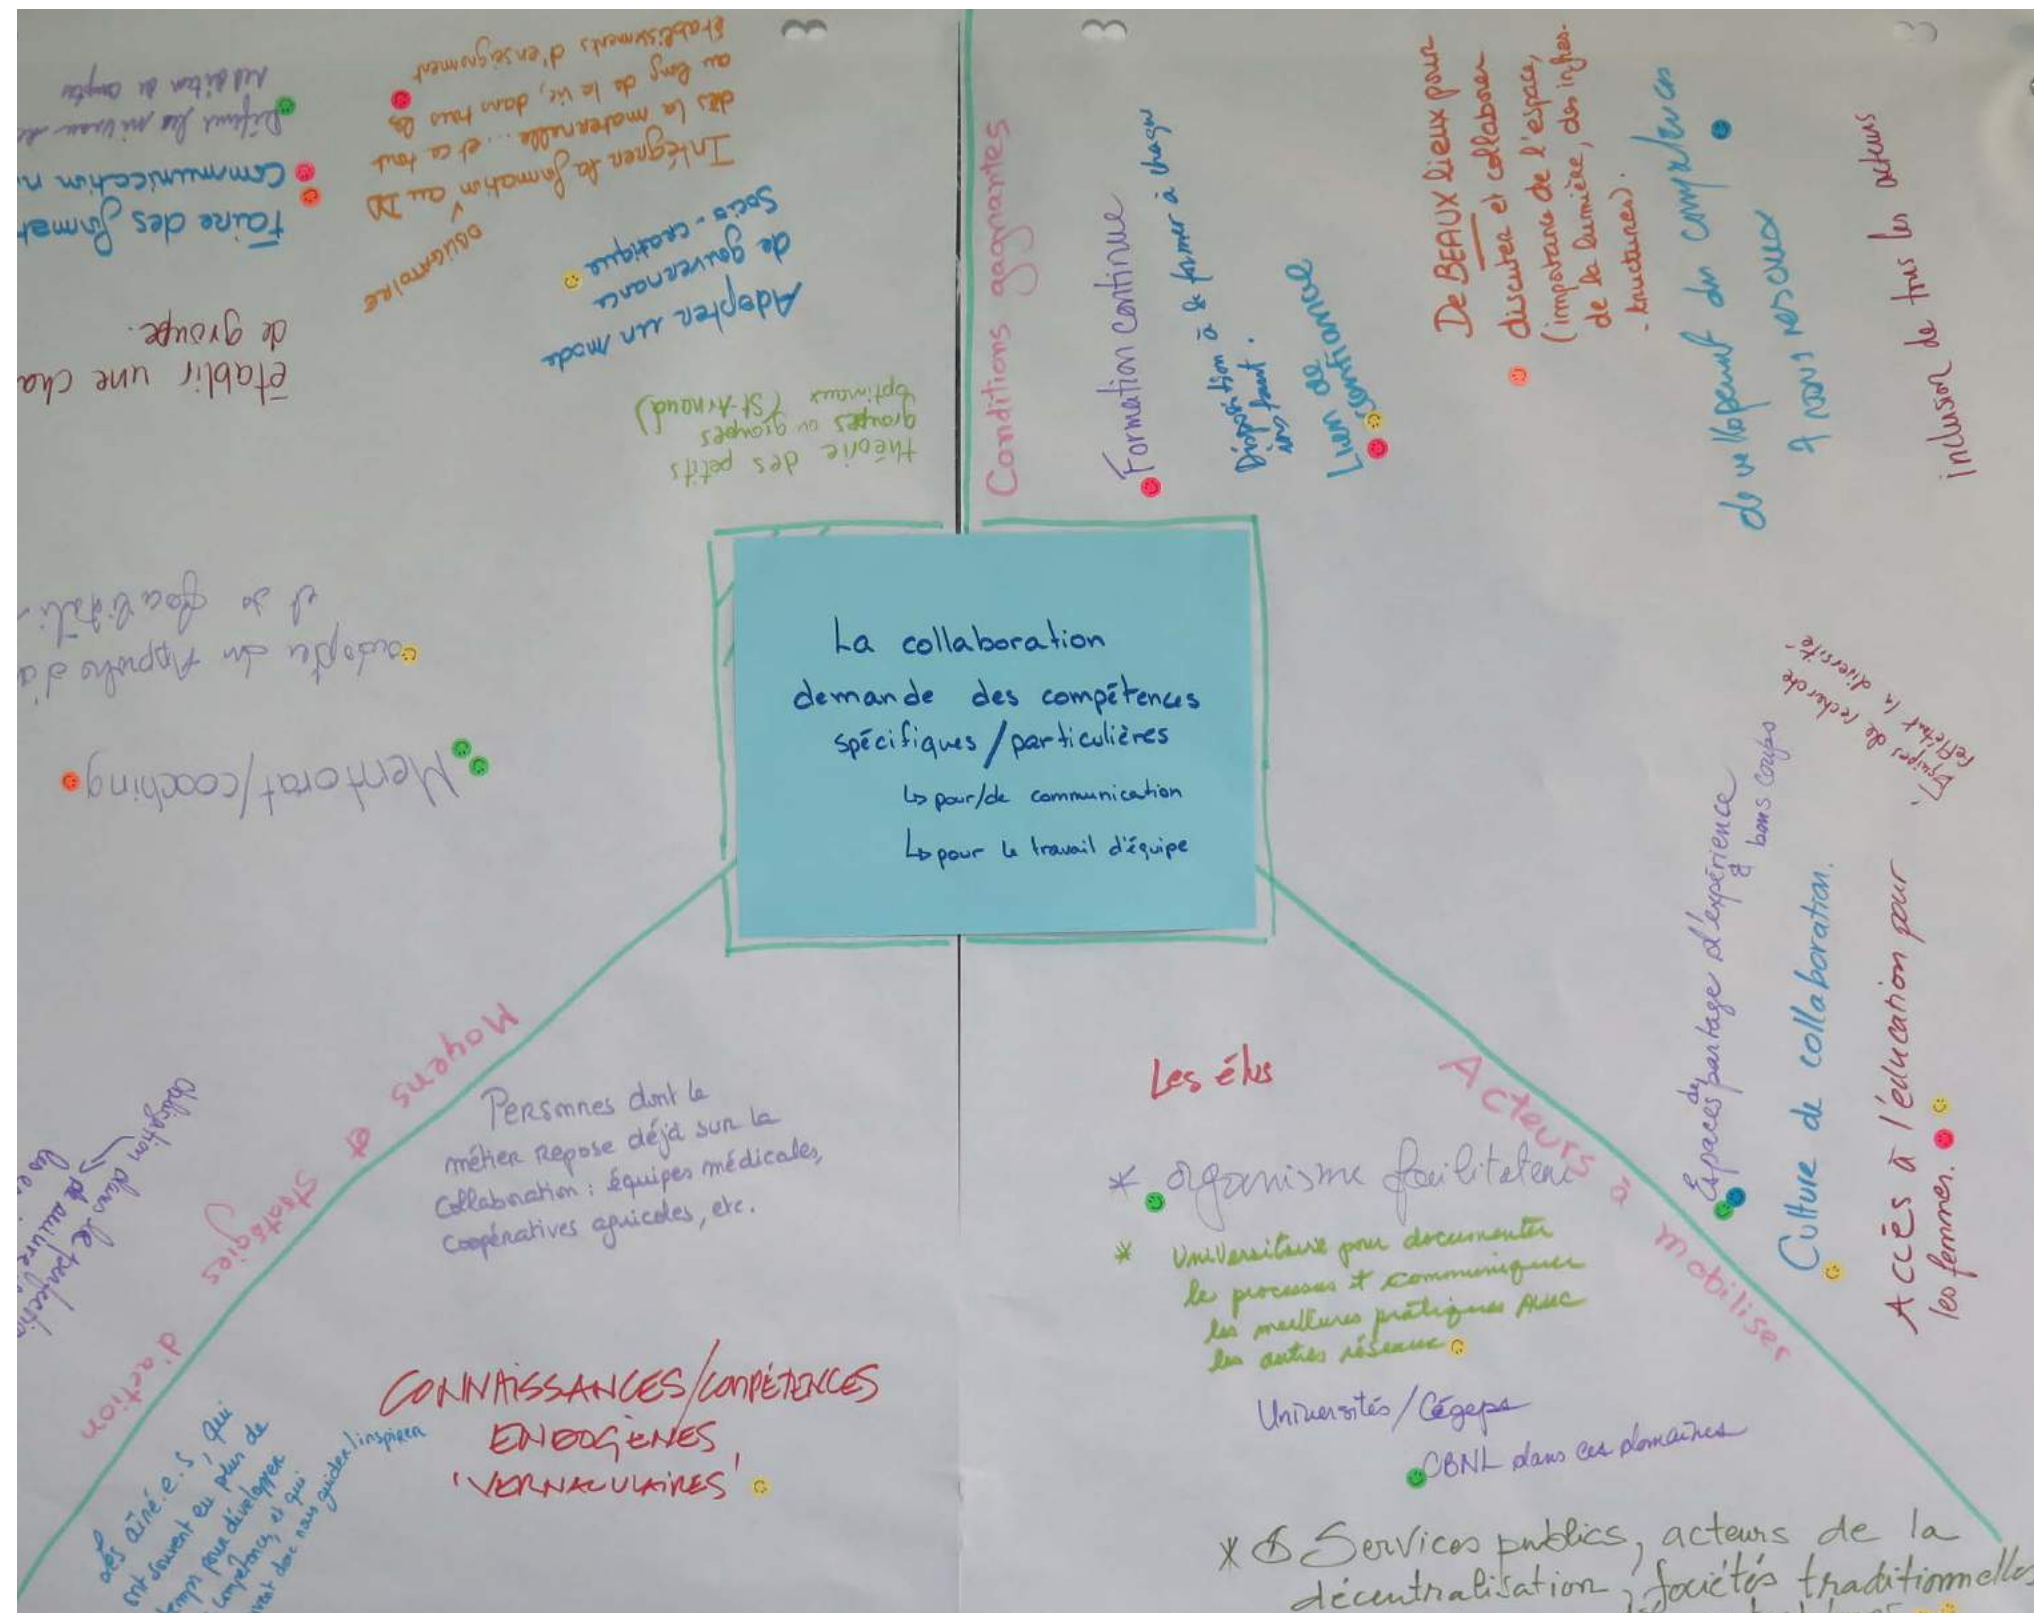 La collaboration
demande des compétences
spécifiques/particulières
↳ pour/de communication
↳ pour le travail d'équipe
Conditions gagnantes
Formation continue
Disposition à se former à chaque
instant.
Lien de
confiance
De BEAUX lieux pour
discuter et collaborer
(importance de l'espace,
de la lumière, des infras-
-tructures).
inclusion de tous les acteurs
Équipes de recherche
reflétant la diversité
Espaces de partage d'expérience
&
bons coups
Culture de collaboration.
Accès à l'éducation pour
les femmes.
Acteurs à mobiliser
Les élus
* organisme facilitateur
* Universitaire pour documenter
le processus + communiquer
les meilleures pratiques avec
les autres réseaux
Universités/Cégeps
OBNL dans ces domaines
* Services publics, acteurs de la
décentralisation, sociétés traditionnelles
Personnes dont le
métier repose déjà sur la
collaboration : équipes médicales,
coopératives agricoles, etc.
CONNAISSANCES/COMPÉTENCES
ENDOGÈNES
'VERNACULAIRES'
Les aîné.e.s, qui
ont souvent eu plus de
temps pour développer
compétences, et qui
donc nous guider/inspirer
Moyens et stratégies d'action
théorie des petits
groupes ou groupes
optimaux (St-Arnaud)
Adopter un mode
de gouvernance
socio-cratique
OBLIGATOIRE
Intégrer la formation au DD
dès la maternelle... et ca tout
au long de la vie, dans tous les
établissements d'enseignement
Établir une cha
de groupe.
Faire des format
Communication n
reddition de compte
Mentorat/coaching